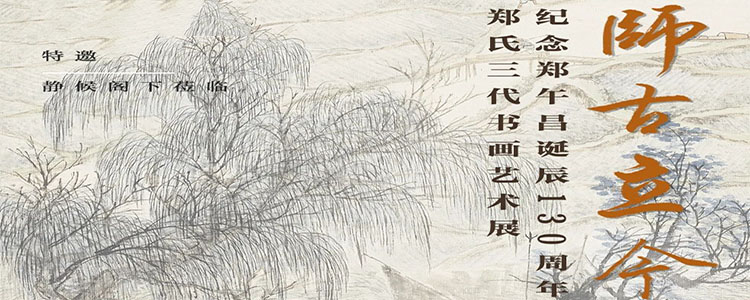 師古立今
纪念郑午昌诞辰130周年
郑氏三代书画艺术展
特邀
静候阁下莅临